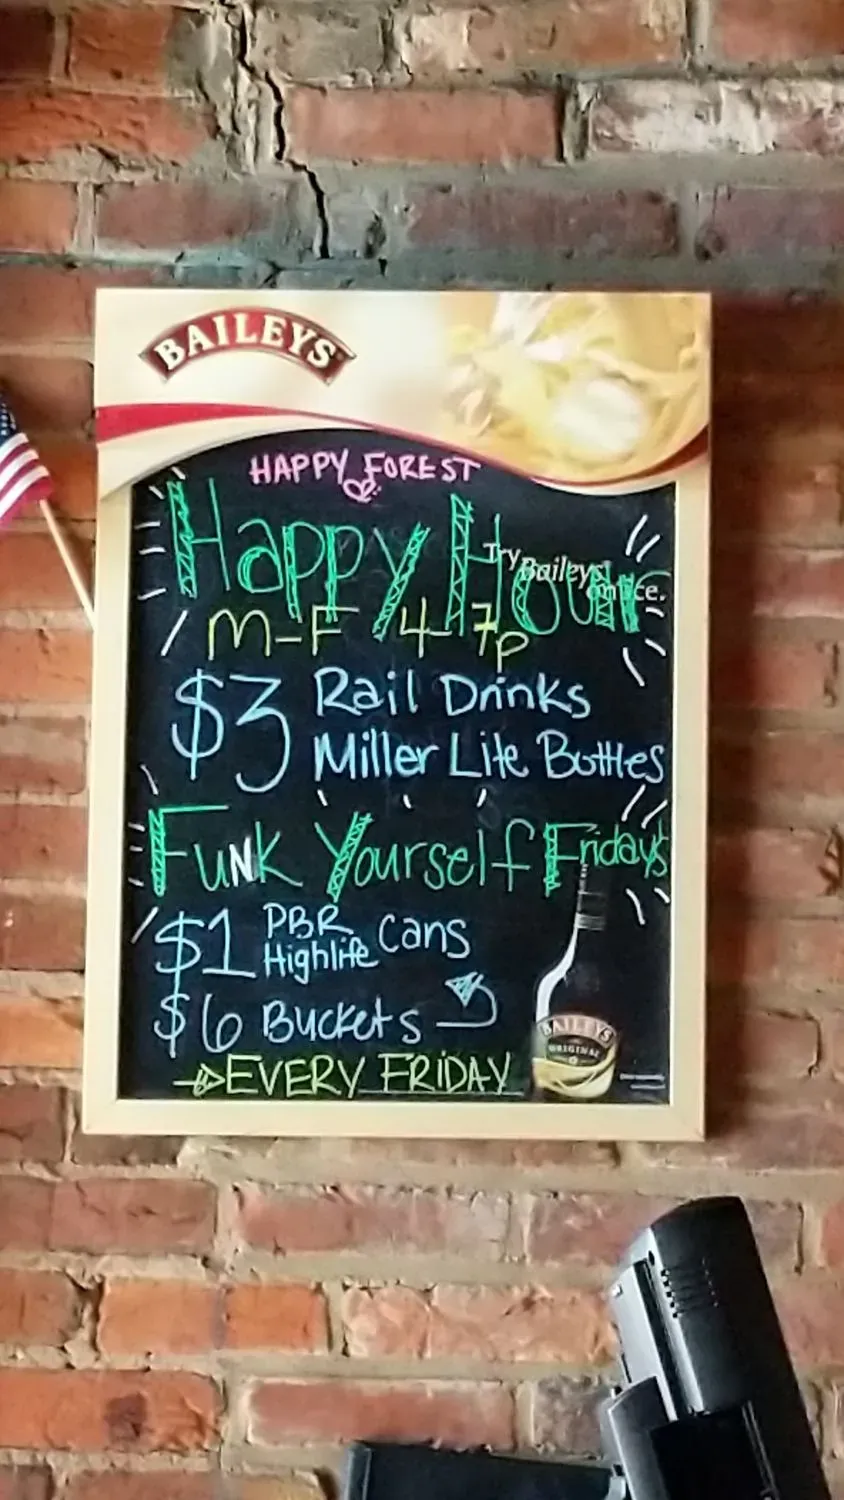 BAILEYS
HAPPY FOREST
Happy Hour
Try Baileys
on ice.
M-F 4-7p
$3 Rail Drinks
Miller Lite Bottles
Funk Yourself Fridays
$1 PBR Cans
Highlife
$6 Buckets
BAILEYS
ORIGINAL
EVERY FRIDAY